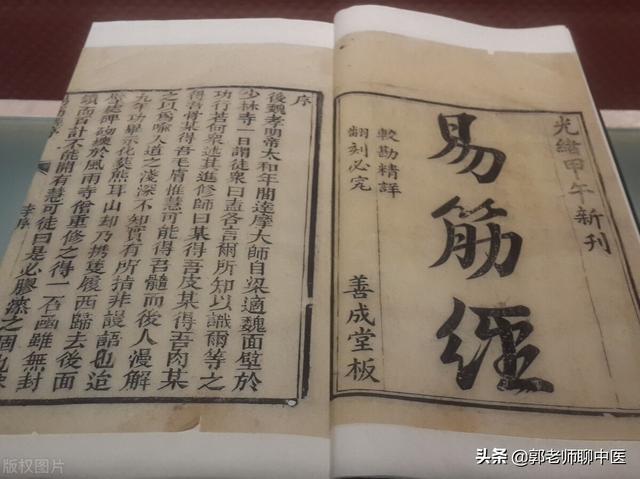 光緒甲午新刊
易筋經
較勘精詳
翻刻必究
善成堂板
序
後魏孝明帝太和年間達摩大師自梁適魏面壁於
少林寺一日謂徒衆曰盍各言爾所知以識爾等之
功行若何衆述其進修師曰某得吾皮某得吾肉某
得吾骨某得吾毛眉惟慧可能得吾髓而後人漫解
之以爲喻人道之淺深不知實有所指非謾語也迨
九年功畢示化葬熊耳山却乃携隻履西歸去後面
壁處碑砌壞於風雨寺僧重修之得一石函雖無封
鎖而百計不能開有慧可徒曰是必膠漆之固也
李序
版权图片
头条 @郭老师聊中医